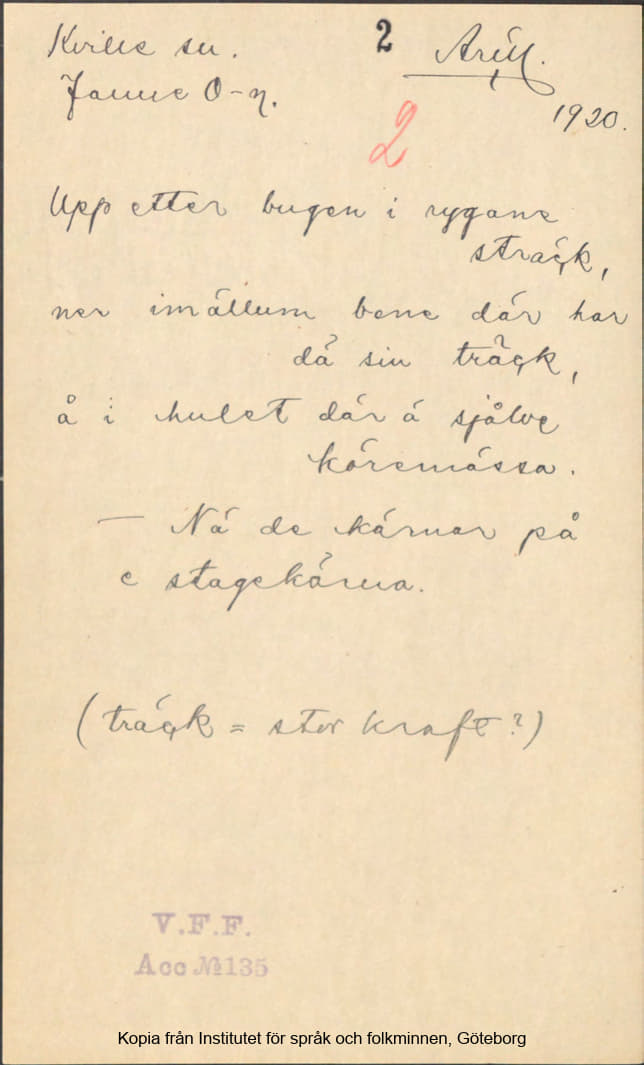 Kville sn. 2 Arill.
Janne O-n. 1920.
2
Upp etter bugen i rygane
sträck,
ner imällum bene där har
då sin träck,
å i hulet där á själve
käremässa.
— Nå de kärnar på
e stagekärna.
(träck = stor kraft?)
V.F.F.
Acc №135
Kopia från Institutet för språk och folkminnen, Göteborg